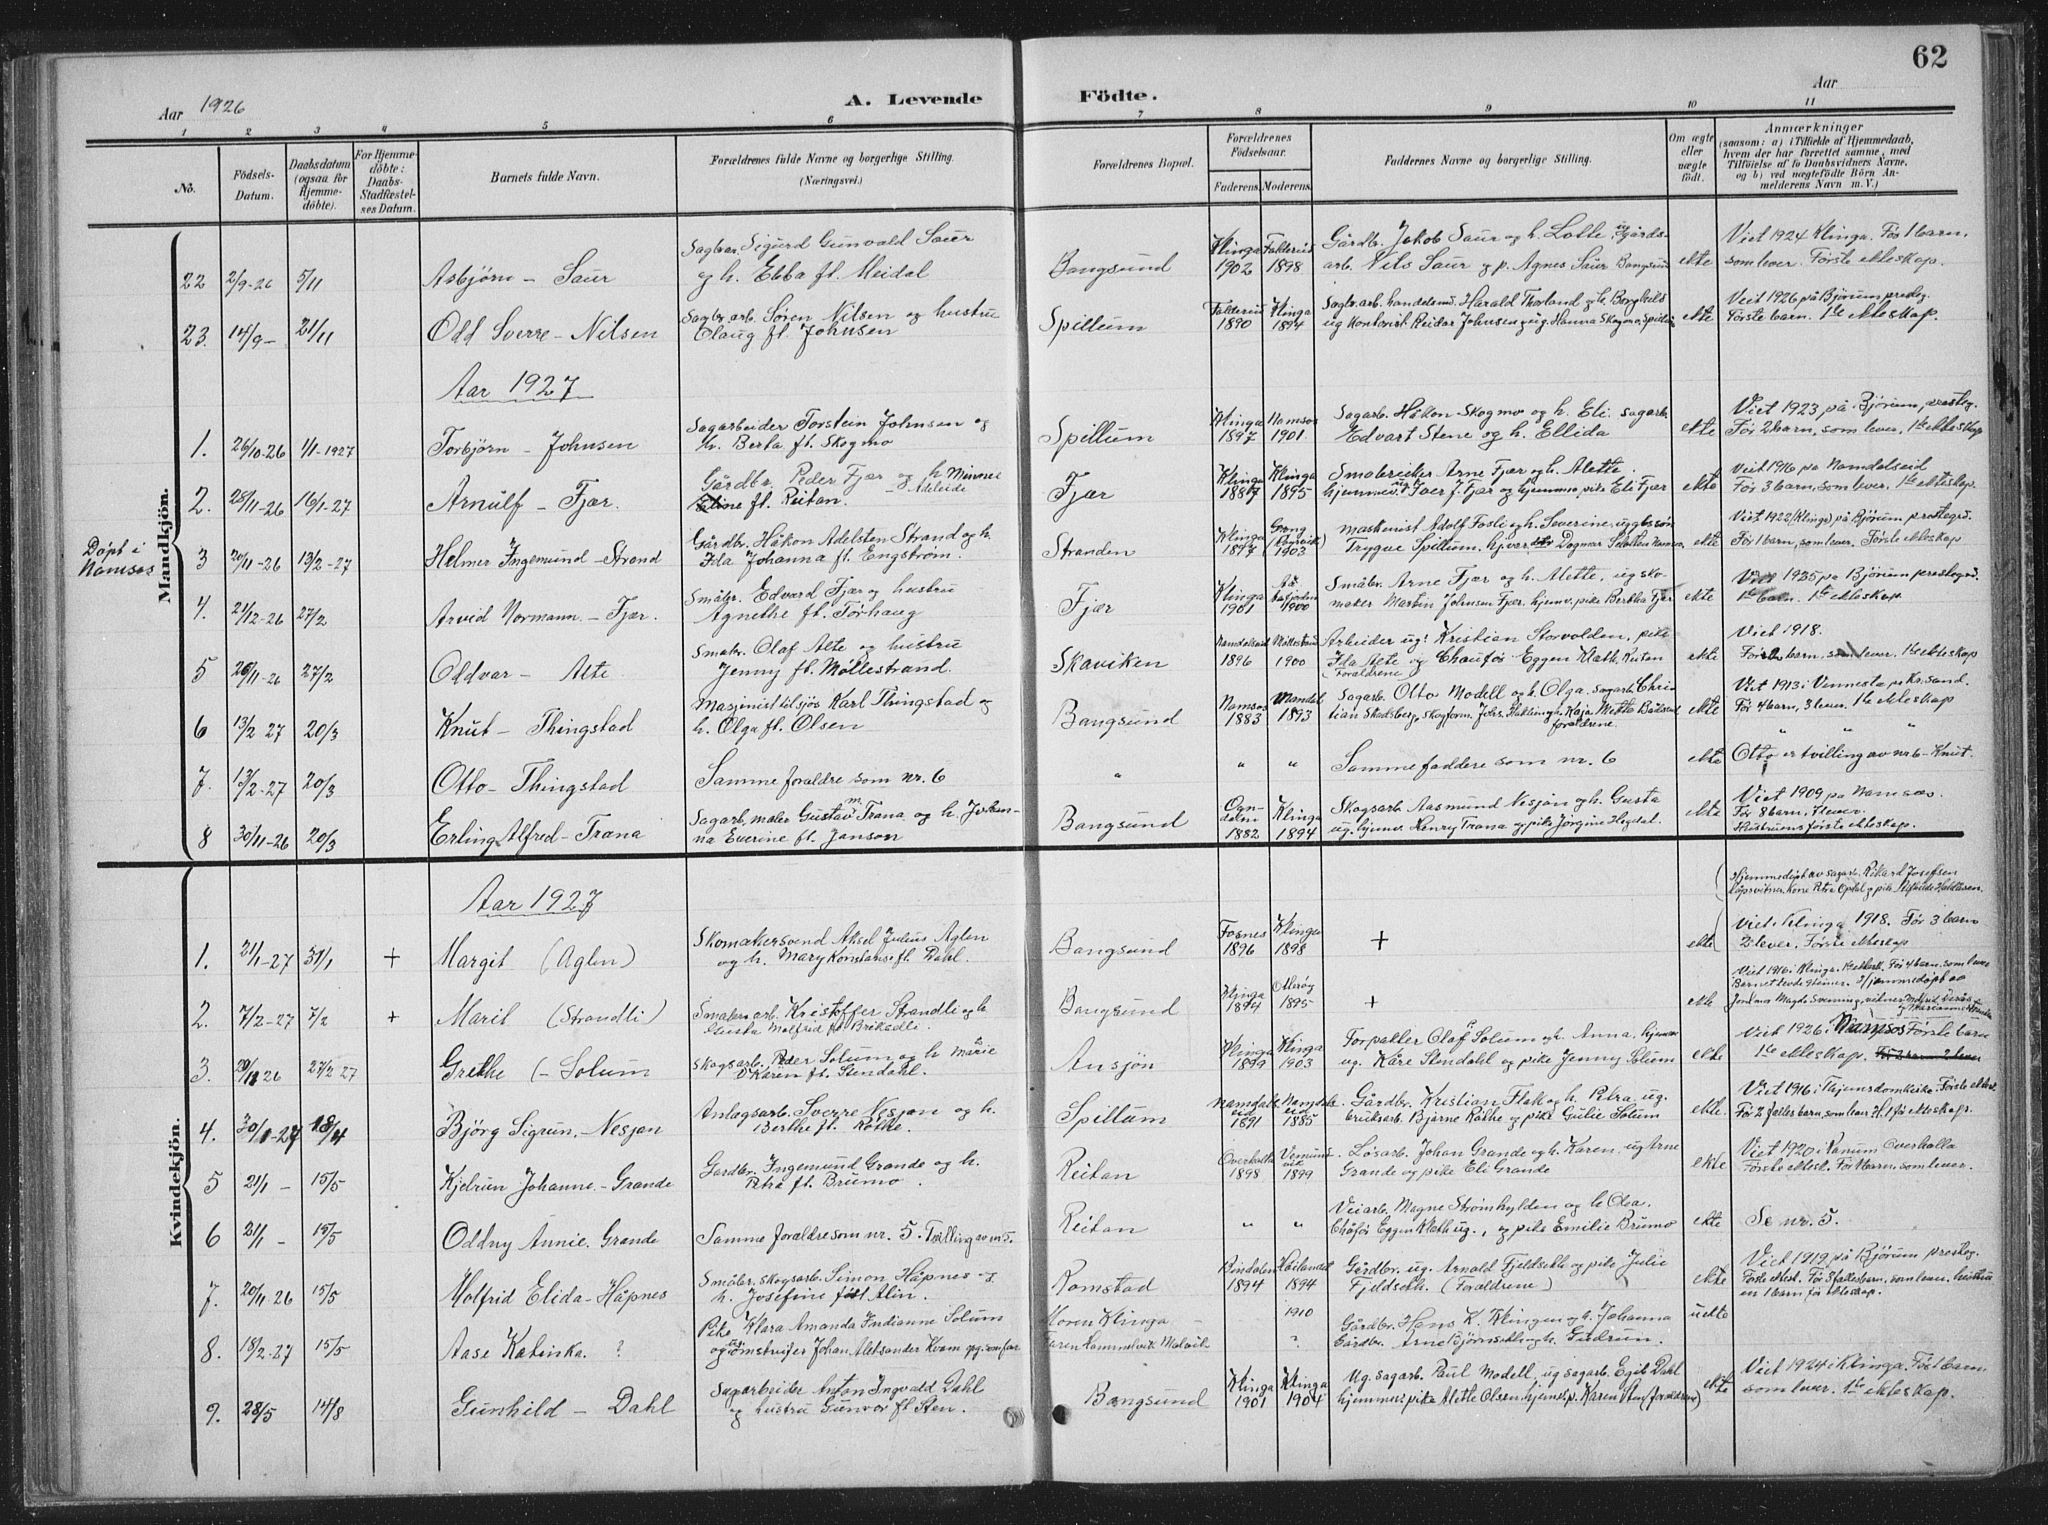 62
Aar 1926
A. Levende Födte.
Aar
1 2 3 4 5 6 7 8 9 10 11
No.
Födsels-Datum.
Daabsdatum (ogsaa for Hjemme-döbte).
For Hjemme-döbte: Daabs-Stadfæstel-ses Datum.
Barnets fulde Navn.
Forældrenes fulde Navne og borgerlige Stilling.
(Næringsvei.)
Forældrenes Bopæl.
Forældrenes Födselsaar.
Faderens. Moderens.
Faddernes Navne og borgerlige Stilling.
Om ægte eller uægte födt.
Anmærkninger
(saasom: a) i Tilfælde af Hjemmedaab,
hvem der har forrettet samme, med
Tilföielse af to Daabsvidners Navne.
og b) ved uægtefödte Börn An-
melderens Navn m. V.)
Mandkjön.
22 2/9-26 5/11 Asbjörn - Saur
Sagbar. Sigurd Gunvald Saur
og h. Ebba ft. Meidal
Bangsund
Klinga 1902 1898
Gårdb. Jakob Saur og h. Lotte, Gårds-
arb. Nils Saur og p. Agnes Saur Bangsund
ekte
Viet 1924 Klinga. Før 1 barn,
som lever. Første ekteskap.
23. 14/9- 21/11 Odd Sverre - Nilsen
Sagbr. arb. Sören Nilsen og hustru
Olaug ft. Johnsen
Spillum
1890 Klinga 1894
Sagbr. arb. handelsmd. Harald Thorland og h. Borghild
ug Kontorist Reidar Johnsen og ug. Hanna Skogmo, Spillum
ekte
Viet 1926 på Bjørum presteg.
Første barn. 1ste ekteskap.
Aar 1927
1. 26/10-26 1/1-1927 Torbjørn - Johnsen
Sagarbeider Torstein Johnsen og
h. Berta ft. Skogmo
Spillum
Klinga 1897 Namsos 1901
Sagarb. Håkon Skogmo og h. Eli. sagarb.
Edvart Stene og h. Ellida
ekte
Viet 1923, på Bjørum, presteg.
Før 2 barn, som lever, 1ste ekteskap
2. 28/11-26 16/1-27 Arnulf - Fjær.
Gårdbr. Peder Fjær og h. Minnie
Adeleide
Eline ft. Reitan.
Fjær
Klinga 1887 Klinga 1895
Arne Fjær og h. Alette.
hjemmev. Iver J. Fjær og hjemmev. pike Eli Fjær
ekte
Viet 1916 på Namdalseid
Før 3 barn, som lever. 1ste ekteskap.
Döpt i Namsos
3 20/11-26 13/2-27 Helmer Ingemund - Strand
Gårdbr. Håkon Adelsten Strand og h.
Ida Johanna ft. Engström.
Stranden
Klinga 1897 Grong 1903
Maskinist Adolf Fosli og h. Severine, uggbssön
Trygve Spillum, Dagmar Namsos.
ekte
Viet 1922 (Klinga) på Bjørum prestegrd.
Før 1 barn, som lever. Første ekteskap
4. 21/12-26 27/2 Arvid Normann - Fjær.
Småbr. Edvard Fjær og hustru
Agnethe ft. Törhaug
Fjær
Klinga 1901 1900
Småbr. Arne Fjær og h. Alette, ug sko-
maker Martin Johnsen Fjær, hjemv. pike Bertha Fjær
ekte
Viet 1925 på Bjørum prestegrd.
1ste barn. 1ste ekteskap
5 26/11-26 27/2 Oddvar - Alte
Småbr. Olaf Alte og hustru
Jenny ft. Møllestrand.
Skaviken
Namdalseid 1896 1900
Arbeider ug. Kristian Storvolden, pike
Ida Alte og Chaufør Eggen Klath. Reitan
(Foraldrene
ekte
Viet 1918.
barn, som lever. 1ste ekteskap
6 13/2 27 20/3 Knut - Thingstad
Masjinist til sjös Karl Thingstad og
h. Olga ft. Olsen
Bangsund
Namsos 1883 Mandal 1893
Sagarb. Otto Modell og h. Olga. Sagarb. Chris-
tian Skogform. Kaja Mette
foraldrene
ekte
Viet 1913 i Vennesla pr. Kr.sand.
Før 4 barn, 3 lever. 1ste ekteskap
" " "
7. 13/2-27 20/3 Otto - Thingstad
Samme foraldre som nr. 6
" " "
Samme faddere som nr. 6
ekte
Otto er tvilling av nr 6 - Knut.
8 30/11-26 20/3 Erling Alfred - Trana
Sagarb, maler Gustav M. Trana og h. Johan-
na Everine ft. Janson
Bangsund
Ogn-dalen 1882 Klinga 1894
Skogsarb. Aasmund Nesjan og h. Gusta
ug. hjemv. Henry Trana og pike Jörgine Hegdal.
ekte
Viet 1909 på Namsos.
Før 8 barn, 7 lever.
Hustruens første ekteskap.
Kvindekjön.
Aar 1927
(Hjemmedöpt av sagarb. Rikard Josefsen
Dåpsvitner Kone Petra Opdal og pike
1. 21/1-27 31/1 + Margit (Aglen)
Skomakersvend Aksel Julius Aglen
og h. Mary Konstanse ft. Dahl.
Bangsund
Fosnes 1896 Klinga 1898
+
ekte
Viet i Klinga 1918. Før 3 barn
2 lever. Første ekteskap
2. 7/2-27 7/2 + Marit (Strandli)
arb. Kristoffer Strandli og h.
Molfrid
Bangsund
Klinga 1894 Otterøy 1895
+
ekte
Viet 1916 i Klinga. 1ste ektesk. Før 4 barn. som lever
Barnet Hjemmedöpt av
3. 29/11 26 27/2 27 Grethe (- Solum
Skogsarb. Peder Solum og h. Marie
Karen ft. Stendahl.
Ansjön
Klinga 1899 Klinga 1903
Forpakter Olaf P. Solum og h. Anna, hjemv.
ug. Kåre Stendahl og pike Jenny Solum
ekte
Viet 1926 i Namsos Første barn
1ste ekteskap.
4. 30/1-27 18/4 Bjørg Sigrun. Nesjan
Anlagsarb. Sverre Nesjan og h.
Berthe ft. Røthe.
Spillum
Namdals-eid 1891 Namdals-eid 1885
Gårdbr. Kristian Flak og h. Petra, ug.
Bjarne Røthe og pike Gulie Solum
ekte.
Viet 1916 i Første ektesk.
Før 2 felles barn, som lever H. 1 før ekteskap.
5 21/1 - 15/5 Kjelrun Johanne - Grande
Gardbr. Ingemund Grande og h.
Petra ft. Brumo.
Reitan
Overhalla 1898 Vemund-vik 1899
Løsarb. Johan Grande og h. Karen, ug Arne
Grande og pike Eli Grande
ekte
Viet 1920 i Ranum Overhalla
Første ektesk. Før 1 barn. som lever.
6 21/1 - 15/5 Oddny Annie. Grande
Samme foraldre som nr. 5. Tvilling av nr 5.
Reitan
" "
Veiarb. Magne Strømhylden og h. Olea.
Chåför Eggen Klath ug., og pike Emilie Brumo
ekte
Se nr. 5.
7. 20/11 26 15/5 Molfrid Elida - Håpnes
Småbr. skogsarb. Simon Håpnes og
h. Josefine født Alin.
Romstad
Bindalen 1894 Høilandet 1894
Gårdbr. ug. Arnold Fjeldsekk og pike Julie
Fjeldsekk. (Foraldrene)
ekte
Viet 1919, på Bjørum presteg.
Første ektesk. Før 3 felles barn, som lever, hustrua
en 1 barn før ekteskap.
8. 18/2-27 15/5 Aase Katinka. ?
Pike Klara Amanda Indianne Solum
og omstreifer Johan Aleksander Kvam opg. som far
Moren Klinga -
Faren Hammelvik Malvik.
1910
?
Gårdbr. Hans K. Klingen og h. Johanna
Gårdbr. Arne Bjørnsekk og h. Gudrun.
uekte
9. 28/5 14/8 Gunhild - Dahl
Sagarbeider Anton Ingvald Dahl
og hustru Gunvor ft. Sten.
Bangsund
Klinga 1901 Klinga 1904
Ug. sagarb. Paul Modell, ug sagarb. Egil Dahl
hjemmev. pike Alette Olsen, hjemv. p. Karen Sten (foraldrene)
ekte
Viet 1924 i Klinga. Før 1 barn.
som lever. 1ste ekteskap.